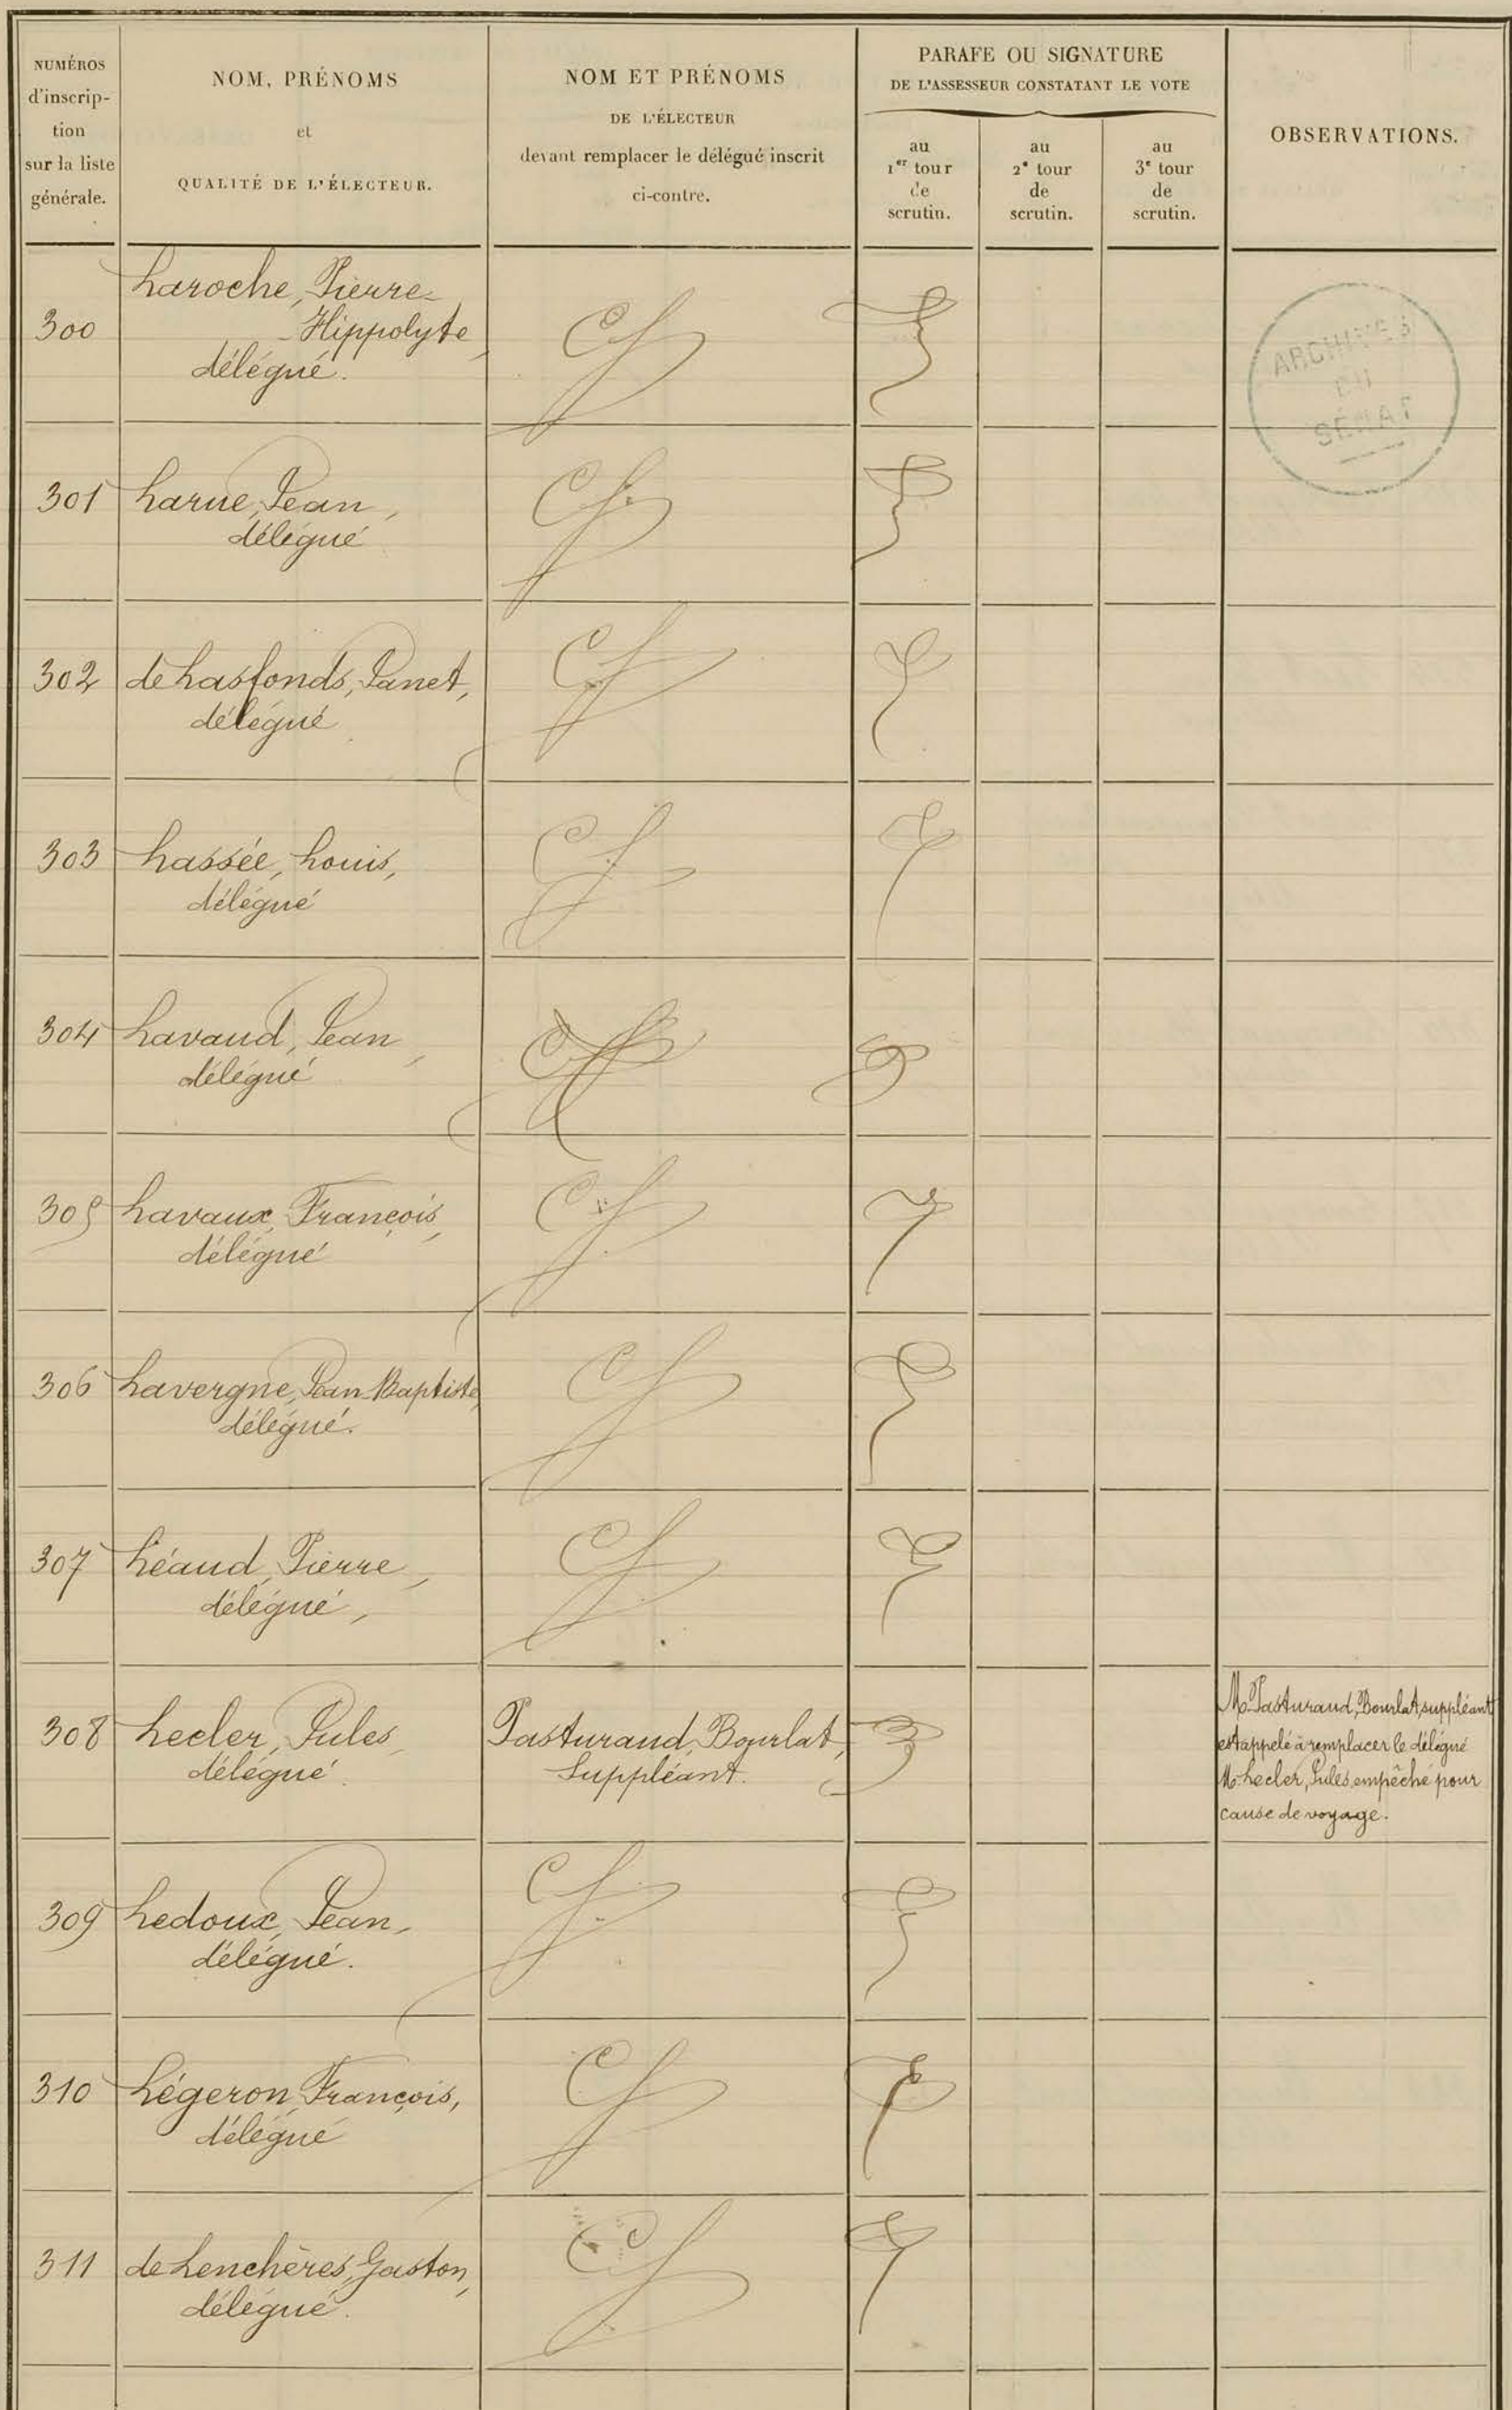 NUMÉROS
d'inscrip-
tion
sur la liste
générale.
NOM, PRÉNOMS
et
QUALITÉ DE L'ÉLECTEUR.
NOM ET PRÉNOMS
DE L'ÉLECTEUR
devant remplacer le délégué inscrit
ci-contre.
PARAFE OU SIGNATURE
DE L'ASSESSEUR CONSTATANT LE VOTE
au
1er tour
de
scrutin.
au
2e tour
de
scrutin.
au
3e tour
de
scrutin.
OBSERVATIONS.
ARCHIVES
DU
SÉNAT
300
Laroche, Pierre-
-Hippolyte,
délégué.
301 Larue, Jean,
délégué
302 de Lasfonds, Janet,
délégué
303 Lassée, Louis,
délégué
304 Lavaud, Jean,
délégué
305 Lavaux, François,
délégué
306 Lavergne, Jean-Baptiste,
délégué.
307 Léaud, Pierre,
délégué,
308 Lecler, Jules, Pasturaud, Bourlat,
délégué Suppléant.
M. Pasturaud, Bourlat, suppléant
est appelé à remplacer le délégué
M. Lecler, Jules, empêché pour
cause de voyage.
309 Ledoux, Jean,
délégué.
310 Légeron, François,
délégué
311 de Lenchères, Gaston,
délégué.